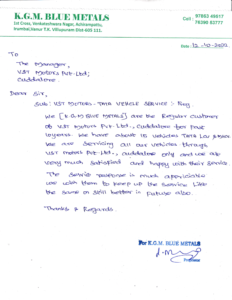 K.G.M. BLUE METALS
1st Cross, Venkateshwara Nagar, Achirampattu,
Irumbai(Vanur T.K. Villupuram Dist-605 111.
Cell :
Date 12-10-
To
The Manager,
VST Motors Pvt. Ltd,
Cuddalore.
Dear Sir,
Sub: VST MOTORS. TATA VEHICLE SERVICE :- Reg.
We [K.G.M BLUE METALS] are the Regular customer
of VST Motors Pvt. Ltd., Cuddalore for Past
years. We have about 15 vehicles Tata
We are servicing all our vehicles through
VST motors Pvt. Ltd., Cuddalore only and we are
very much satisfied and happy with their service
The service response is much appreciable
we wish them to keep up the service like
the same or still better in future also.
Thanks & Regards.
For K.G.M. BLUE METALS